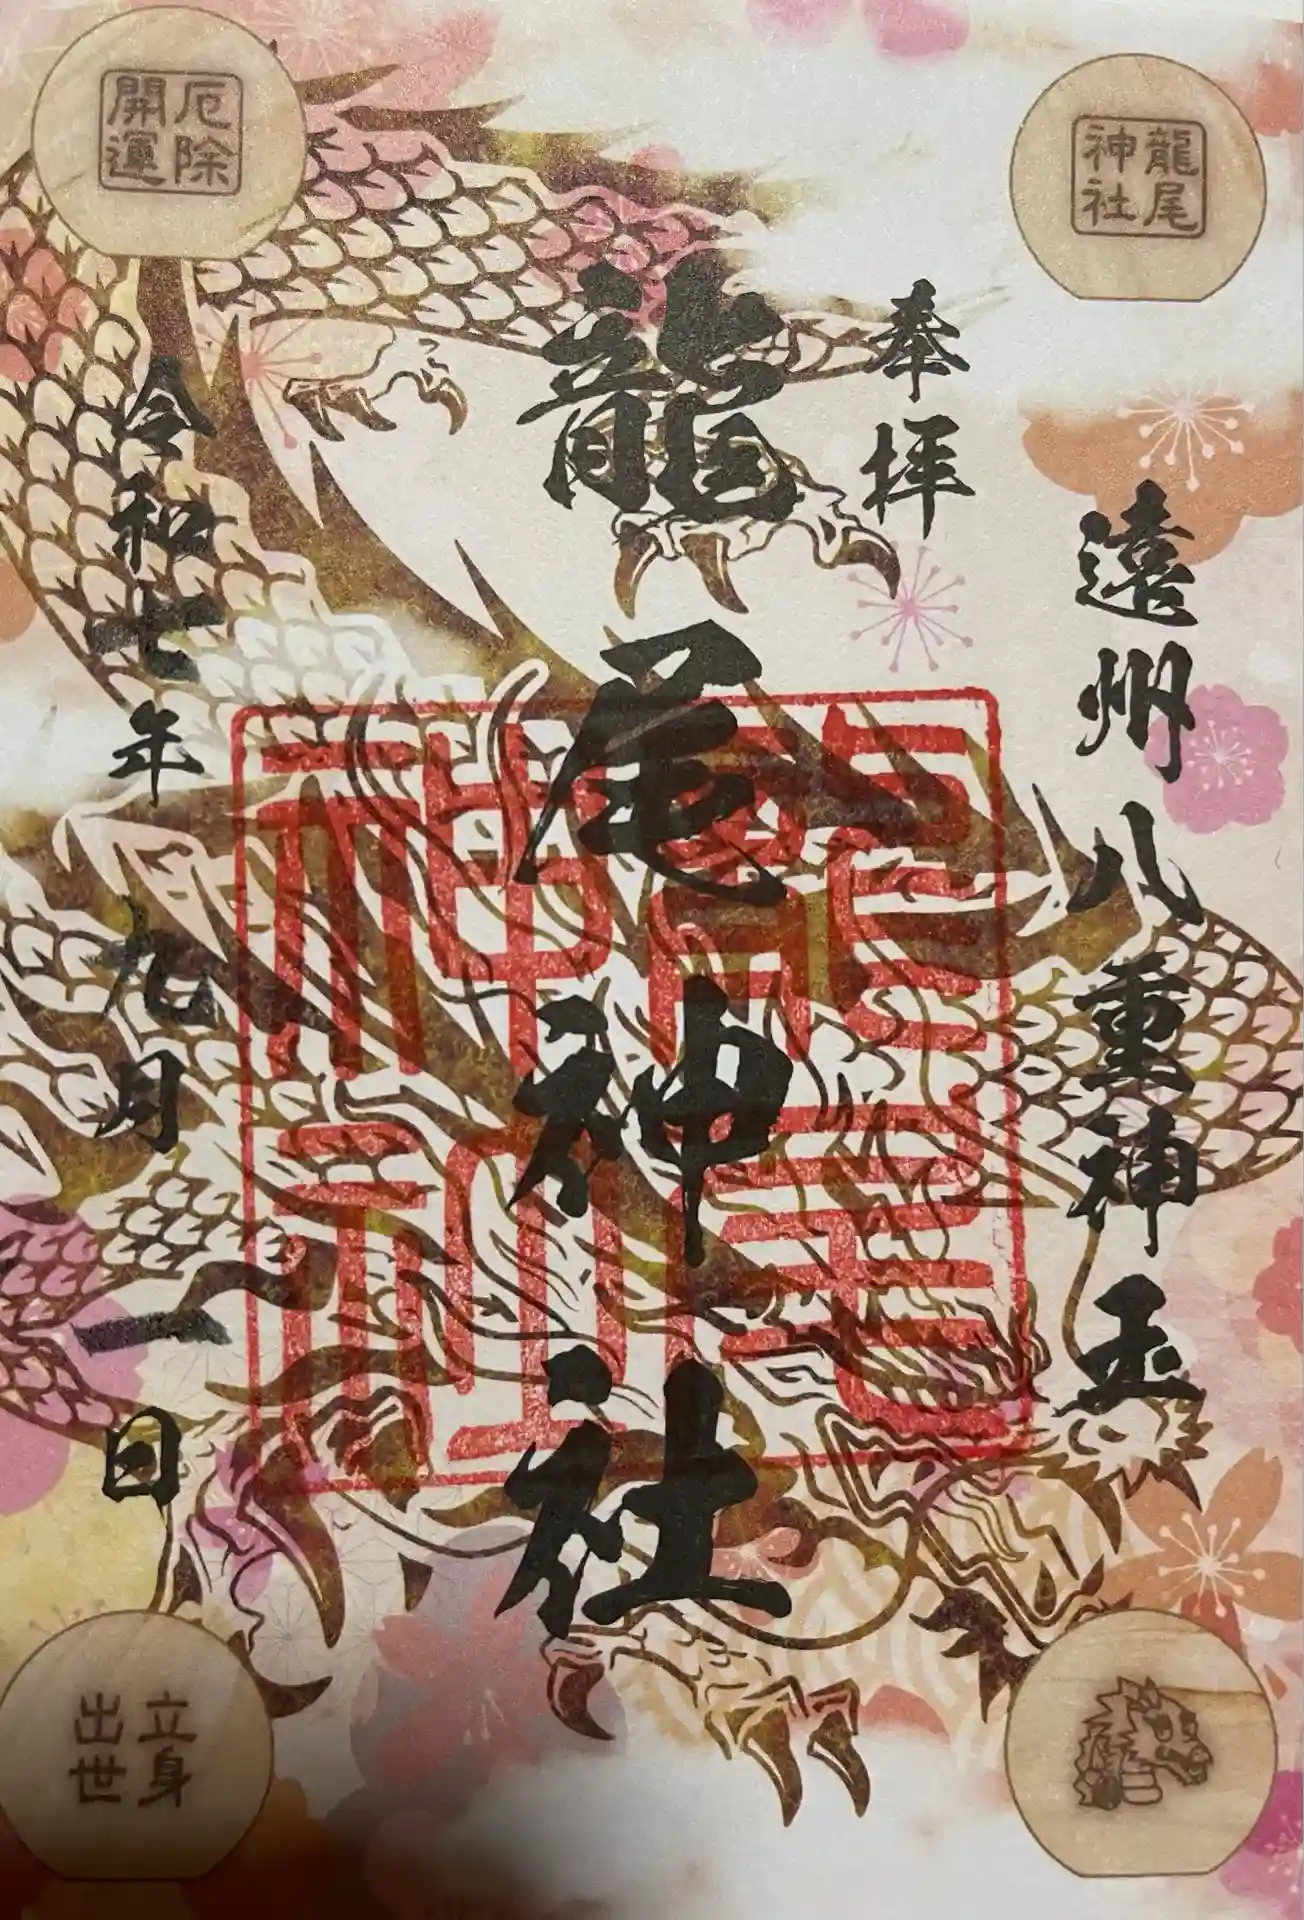 龍尾
神社
遠州八重神玉
奉拝
龍尾神社
龍尾
神社
令和七年九月一日
厄除
開運
立身
出世